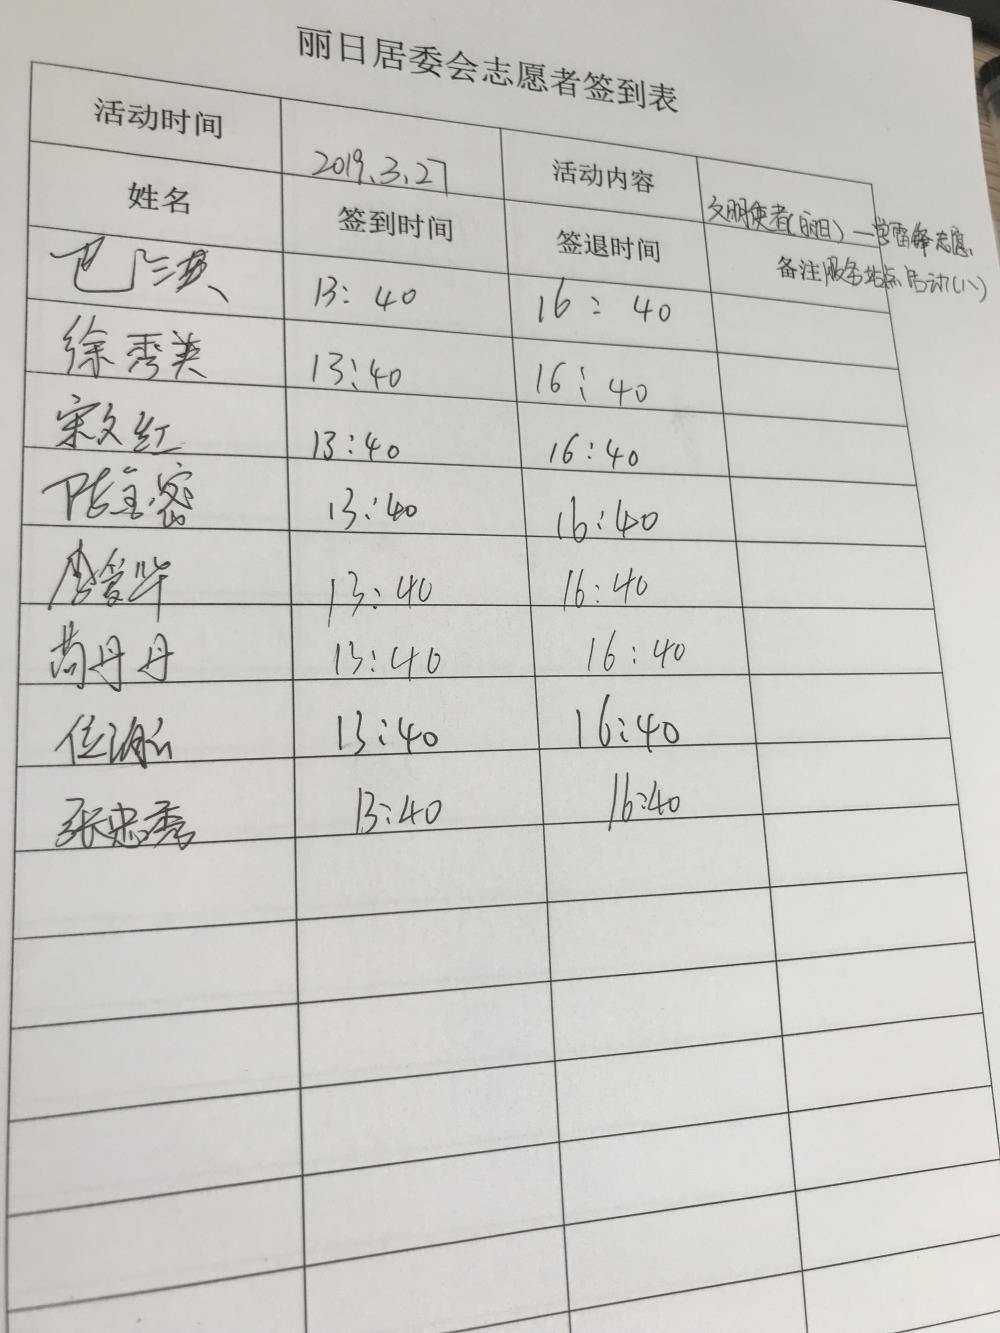 丽日居委会志愿者签到表
活动时间 2019.3.27 活动内容 文明使者(丽日)一学雷锋志愿服务站点活动(八)
姓名 签到时间 签退时间 备注
13:40 16:40
徐秀英 13:40 16:40
宋文红 13:40 16:40
陆金密 13:40 16:40
13:40 16:40
丹丹 13:40 16:40
13:40 16:40
张忠秀 13:40 16:40